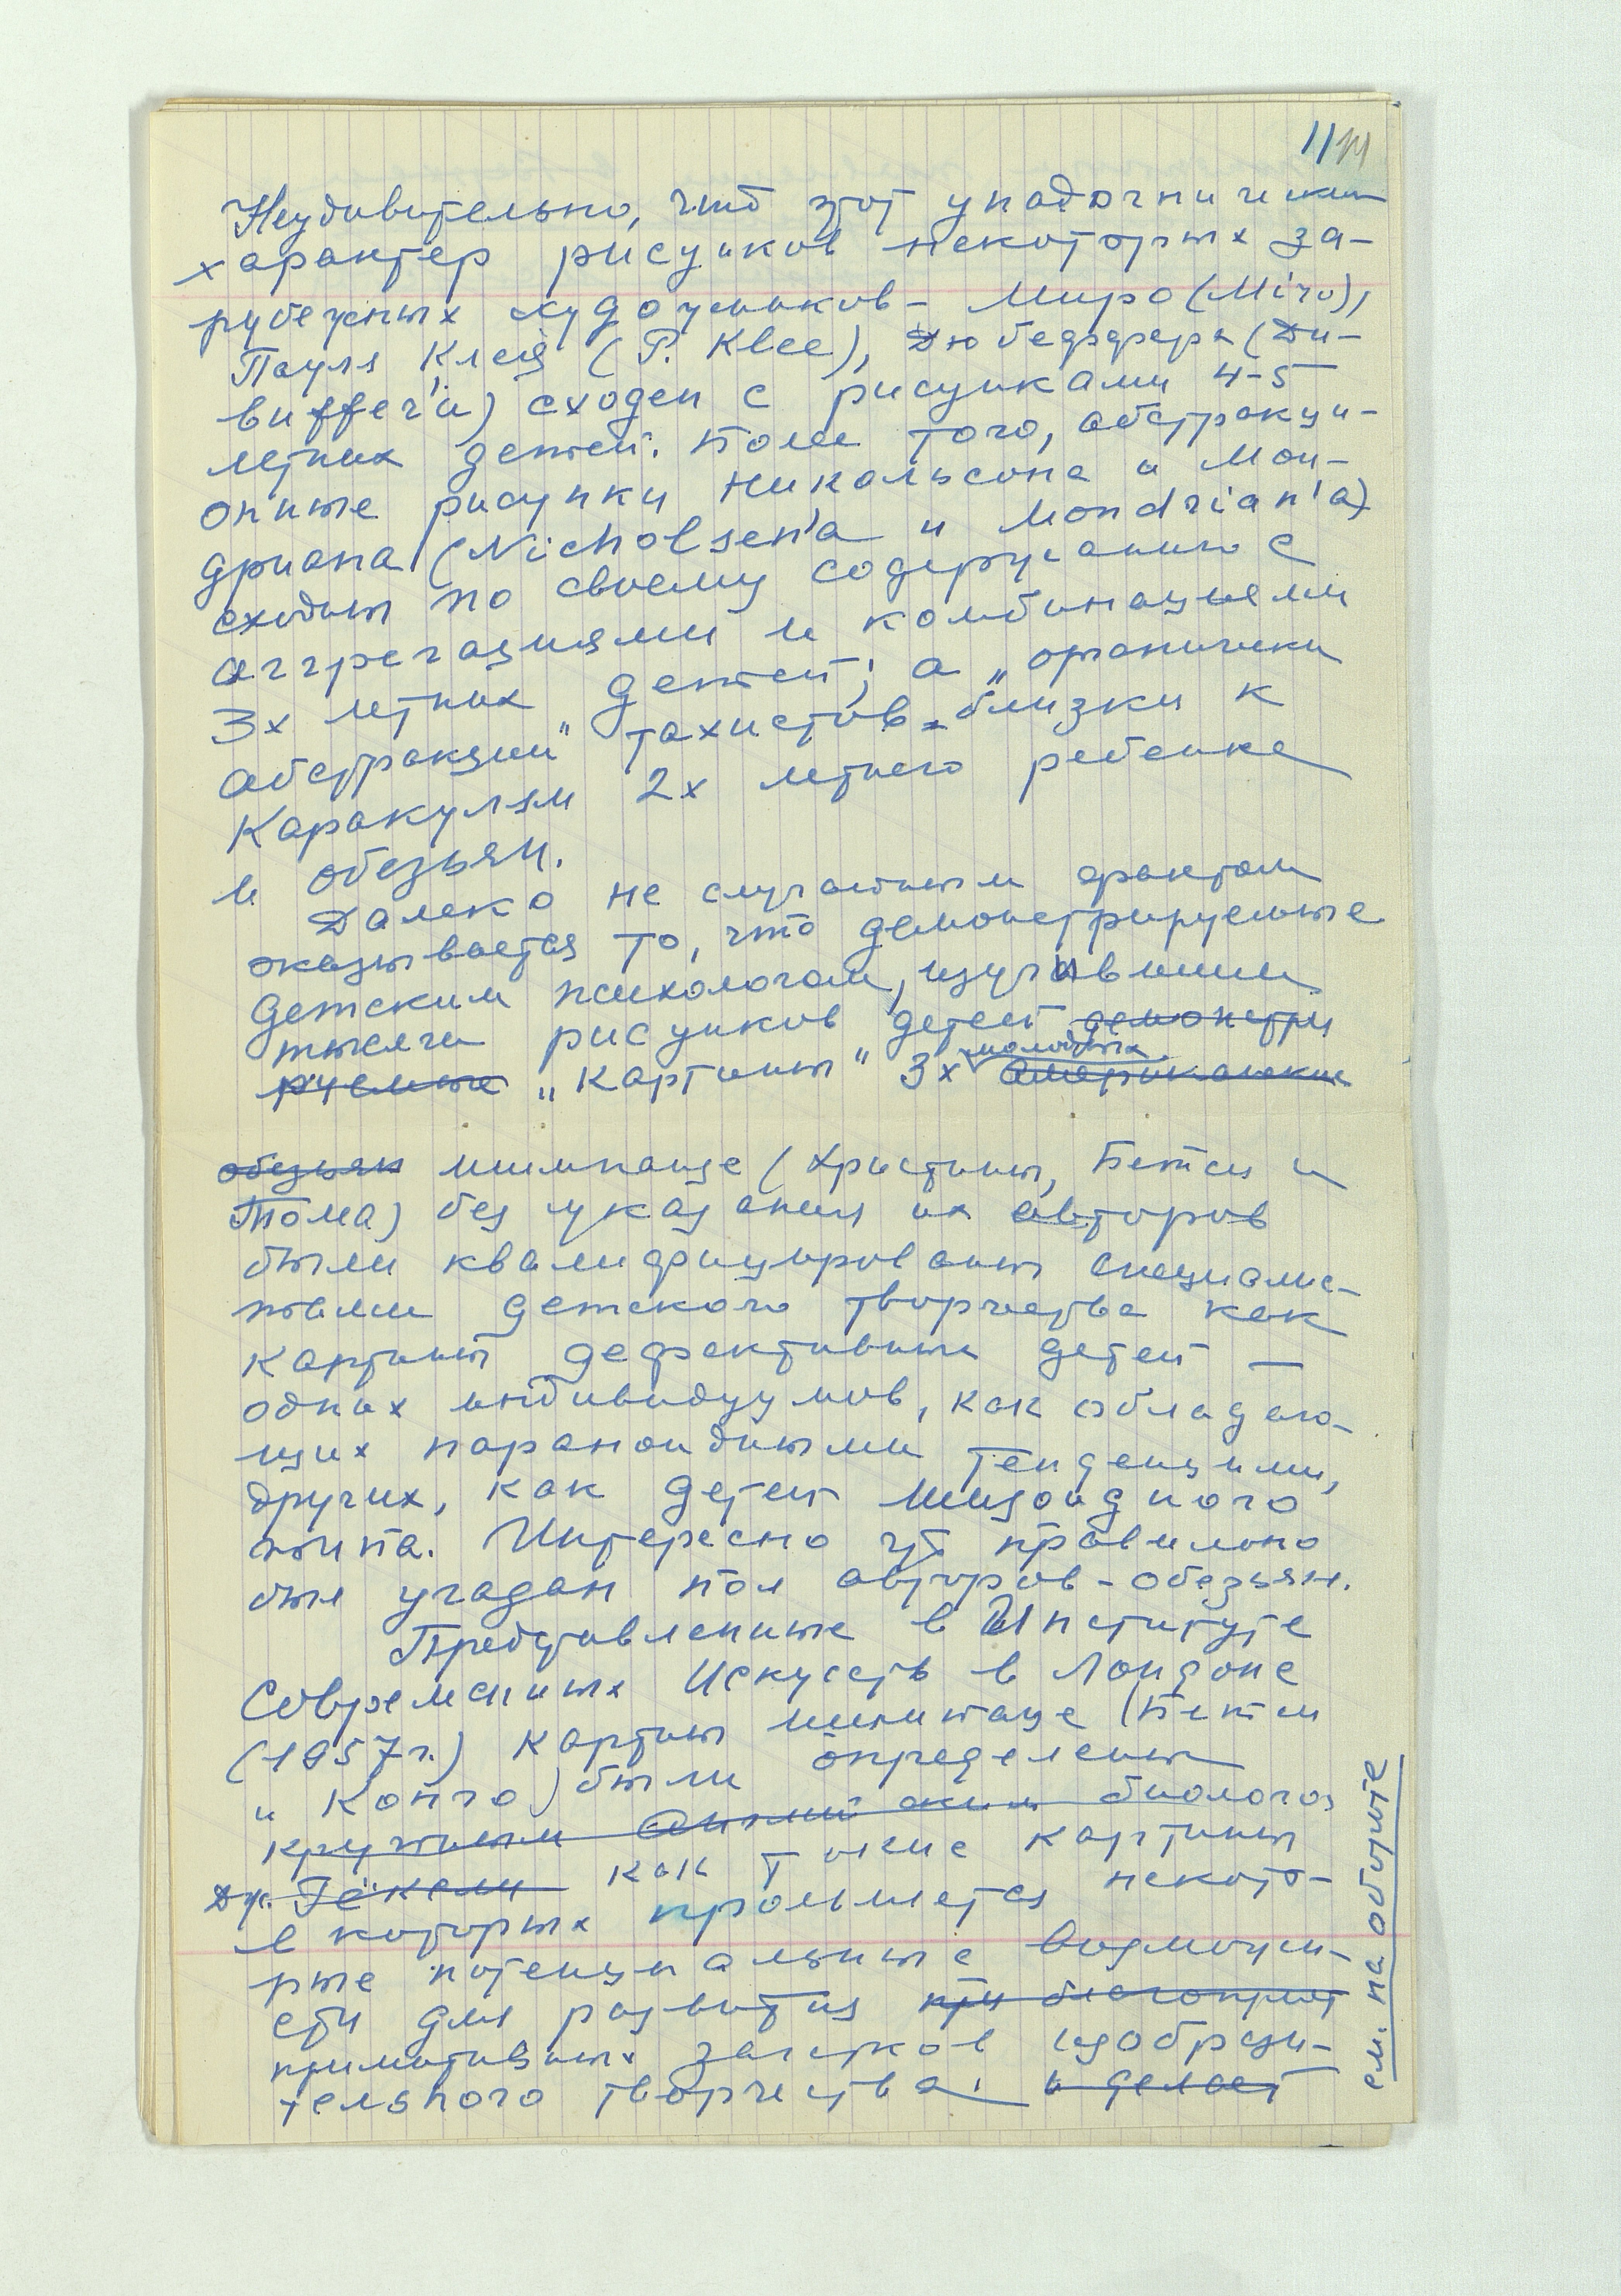 11 11
Неудивительно, что этот упадочнический
характер рисунков некоторых за-
рубежных художников – Миро (Miro),
Пауля Клея (P. Klee), Дюбеффера (Du-
buffer'a) сходен с рисунками 4-5
летних детей. Боле того, абстракци-
онные рисунки Никольсона и Мон-
дриана (Nicholsen'a и Mondrian'a)
сходны по своему содержанию с
аггрегациями и комбинациями
3х летних детей; а „органически
абстракции" тахистов – близки к
каракулям 2х летнего ребенка
и обезьян.
Далеко не случайным фактом
оказывается то, что демонстрируемые
детским психологам, изучившим
тысячи рисунков детей демонстри
руемые „картины" 3х молодых американских
обезьян шимпанзе (Христины, Бетси и
Тома) без указания их авторов
были квалифицированы специалис-
тами детского творчества как
картины дефективных детей –
одних индивидуумов, как обладаю-
щих параноидными тенденциями,
других, как детей шизоидного
типа. Интересно что правильно
был угадан пол авторов-обезьян.
Представленные в Институте
Современных Искусств в Лондоне
(1957 г.) картины шимпанзе (Бетси
и Конго) были определены
крупным Английским биологом
Дж. Гёксли как такие картины
в которых проявляется некото-
рые потенциальные возможно-
сти для развития при благоприят
примитивных зачатков изобрази-
тельного творчества. и делает
см. на обороте